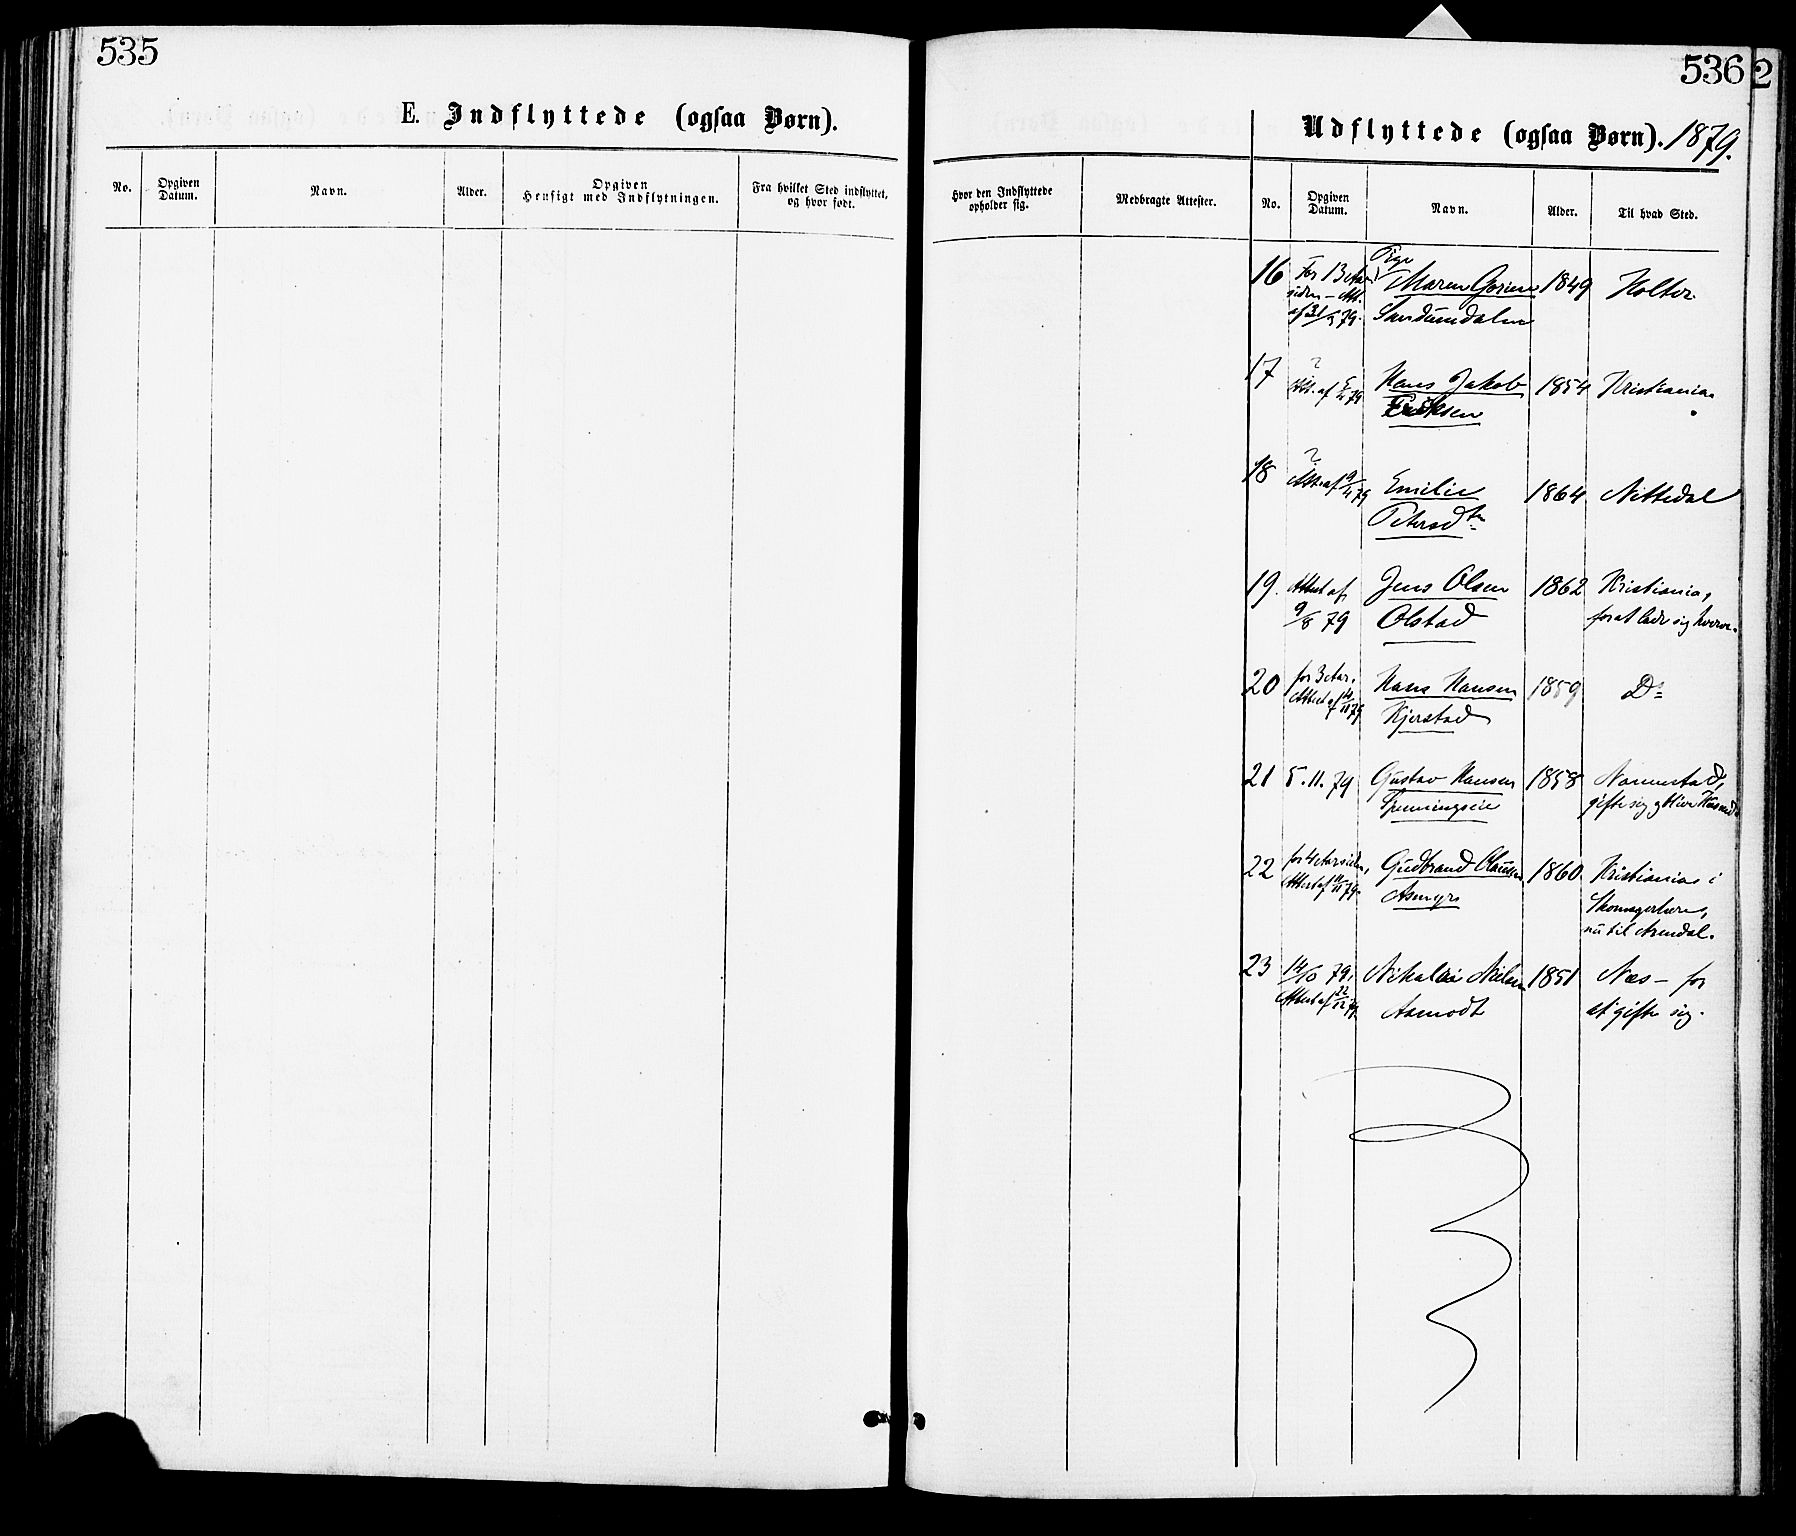 535
E. Indflyttede (ogsaa Børn).
No.
Opgiven
Datum.
Navn.
Alder.
Opgiven
Hensigt med Indflytningen.
Fra hvilket Sted indflyttet,
og hvor født.
536
2
Udflyttede (ogsaa Børn). 1879.
Hvor den Indflyttede
opholder sig.
Medbragte Attester.
No.
Opgiven
Datum.
Navn.
Alder.
Til hvad Sted.
16 For 13 Aar Pige Maren Gorine 1849 Holter
siden – Att.
af 31/3 79. Sandumdalen
17 ? Hans Jakob 1854 Kristiania
Att. af 5/4 79 Eriksen
18 ? Emilie 1864 Nittedal
Att. af 9/4 79 Petersdtr
19. Attest af Jens Olsen 1862 Kristiania,
9/8 79 Olstad for at lade sig hverve.
20 for 3 Aar. Hans Hansen 1859 Do
Attest af 14/11 79 Kjerstad
21 5.11.79 Gustav Hansen 1858 Nannestad,
Spenningseie gifte sig og blive Husmd
22 for 4 Aar siden, Gudbrand Olausen 1860 Kristiania i
Attest af 11/11 79. Asmyr Skomagerlære,
nu til Arendal.
23 14/10 79. Nikolai Nielsen 1851 Næs – for
Attest af 22/12 79 Asmodt at gifte sig.